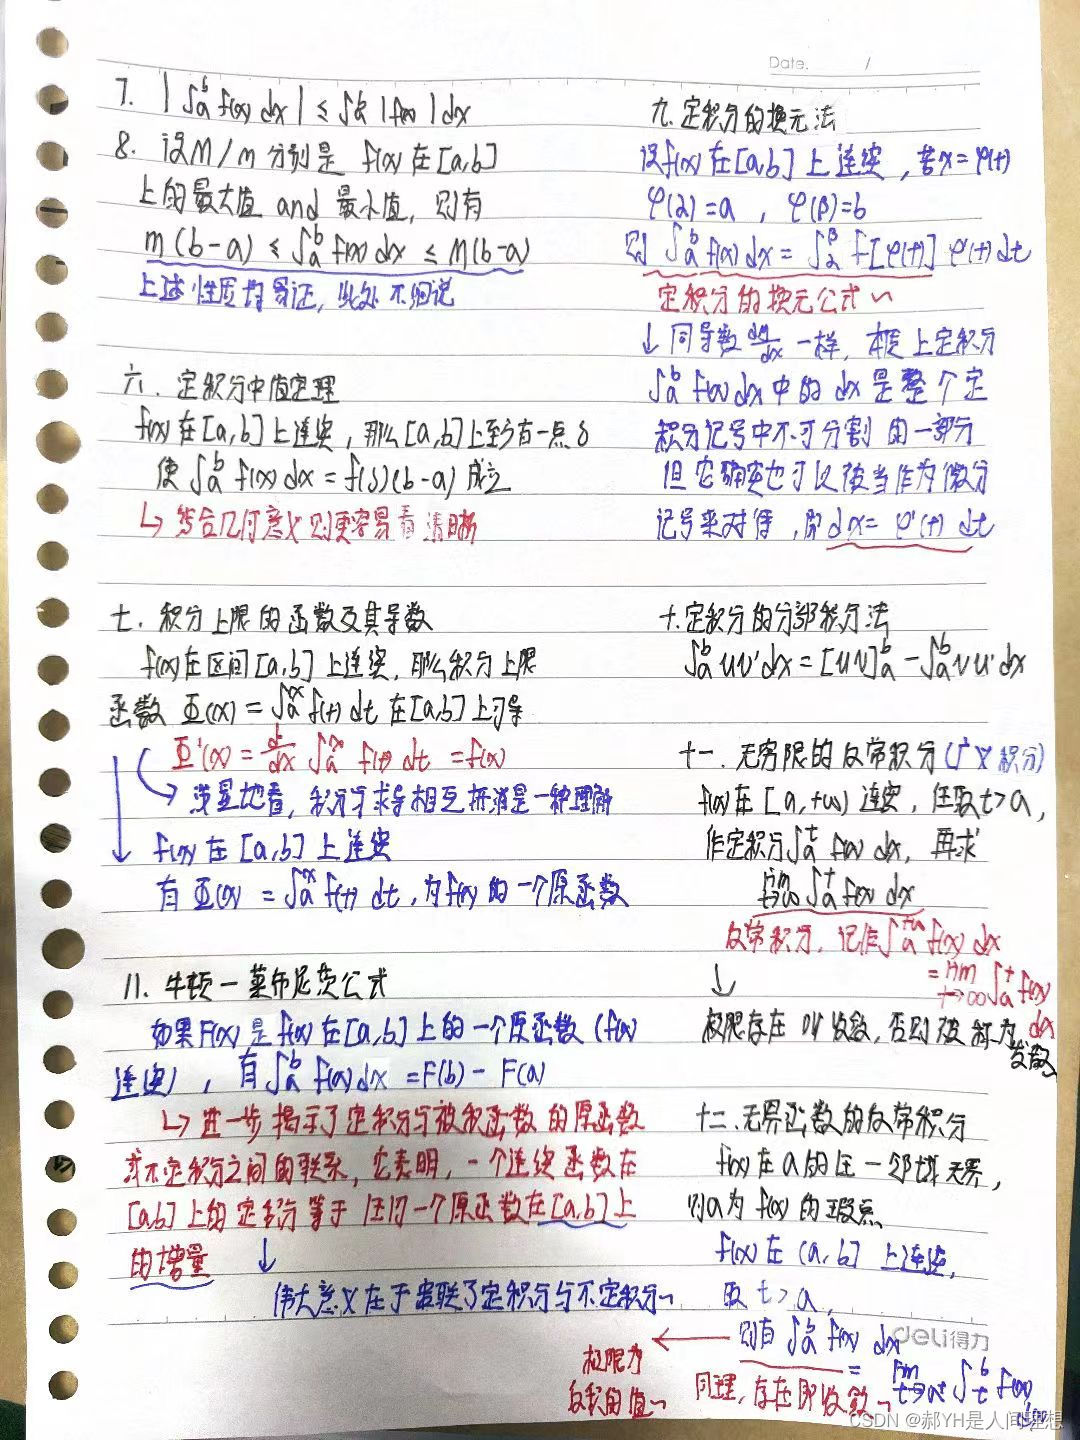 Date. /
7. |∫ₐᵇ f(x) dx| ≤ ∫ₐᵇ |f(x)| dx
8. 设M/m分别是 f(x)在[a,b]
上的最大值 and 最小值, 则有
m(b-a) ≤ ∫ₐᵇ f(x) dx ≤ M(b-a)
上述性质均易证, 此处不细说
六. 定积分中值定理
f(x)在[a,b]上连续, 那么[a,b]上至少有一点δ
使 ∫ₐᵇ f(x) dx = f(δ)(b-a) 成立
↳ 结合几何意义则更容易看清晰
七. 积分上限的函数及其导数
f(x)在区间[a,b]上连续, 那么积分上限
函数 Φ(x) = ∫ₐˣ f(t) dt 在[a,b]上可导
Φ'(x) = d/dx ∫ₐˣ f(t) dt = f(x)
浅显地看, 积分与求导相互抵消是一种理解
f(x)在[a,b]上连续
有 Φ(x) = ∫ₐˣ f(t) dt, 为f(x)的一个原函数
八. 牛顿-莱布尼茨公式
如果F(x)是f(x)在[a,b]上的一个原函数(f(x)
连续), 有∫ₐᵇ f(x)dx = F(b) - F(a)
↳ 进一步揭示了定积分与被积函数的原函数
或不定积分之间的联系, 它表明, 一个连续函数在
[a,b]上的定积分等于任何一个原函数在[a,b]上
的增量 ↓
伟大意义在于串联了定积分与不定积分~
九. 定积分的换元法
设f(x)在[a,b]上连续, 若x=φ(t)
φ(α)=a, φ(β)=b
则 ∫ₐᵇ f(x) dx = ∫_α^β f[φ(t)] φ'(t) dt
定积分的换元公式~
↓ 同导数 dy/dx 一样, 本质上定积分
∫ₐᵇ f(x) dx 中的 dx 是整个定
积分记号中不可分割的一部分
但它确实也可以被当作为微分
记号来对待, 即dx = φ'(t) dt
十. 定积分的分部积分法
∫ₐᵇ uv' dx = [uv]ₐᵇ - ∫ₐᵇ vu' dx
十一. 无穷限的反常积分(广义积分)
f(x)在[a,+∞)连续, 任取t>a,
作定积分∫ₐᵗ f(x) dx, 再求
lim t→∞ ∫ₐᵗ f(x) dx
反常积分, 记作∫ₐ^+∞ f(x) dx
= lim t→∞ ∫ₐᵗ f(x) dx
↓
极限存在则收敛, 否则被称为
发散
十二. 无界函数的反常积分
f(x)在a的任一邻域无界,
则a为f(x)的瑕点
f(x)在(a,b]上连续,
取t>a,
则有 ∫ₐᵇ f(x) dx
= lim t→a⁺ ∫ₜᵇ f(x) dx
极限为
反积的值~
同理, 存在即收敛~
deli得力
CSDN @郝YH是人间理想